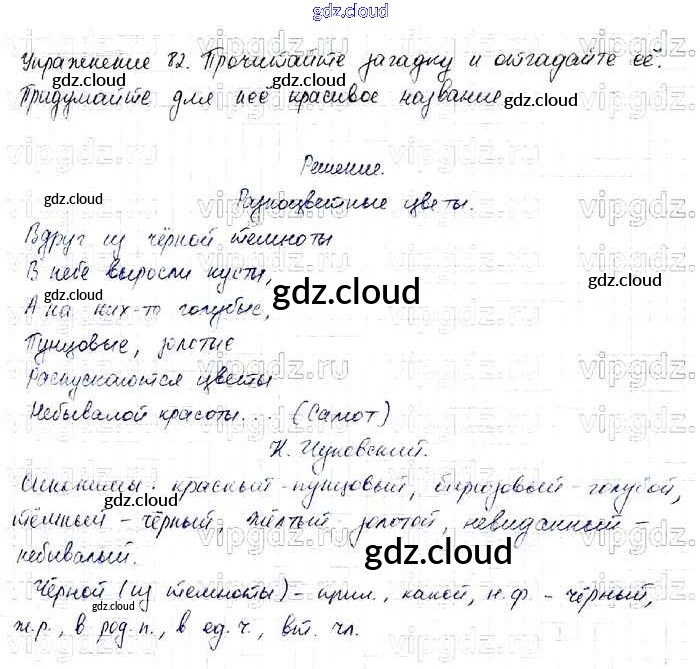 gdz.cloud
Упражнение 82. Прочитайте загадку и отгадайте её.
Придумайте для неё красивое название
gdz.cloud
Решение.
gdz.cloud
Разноцветные цветы.
gdz.cloud
Вдруг из чёрной темноты
В небе выросли кусты,
gdz.cloud
gdz.cloud
А на них-то голубые,
Пунцовые, золотые
Распускаются цветы
gdz.cloud
Небывалой красоты... (Салют)
К. Чуковский.
Синонимы: красный - пунцовый, бирюзовый - голубой,
gdz.cloud
gdz.cloud
тёмный - чёрный, жёлтый - золотой, невиданный -
небывалый.
gdz.cloud
gdz.cloud
Чёрной (из темноты) - прил., какой, н.ф. - чёрный,
gdz.cloud
ж.р., в род.п., в ед.ч., вт. чл.
vipgdz.ru